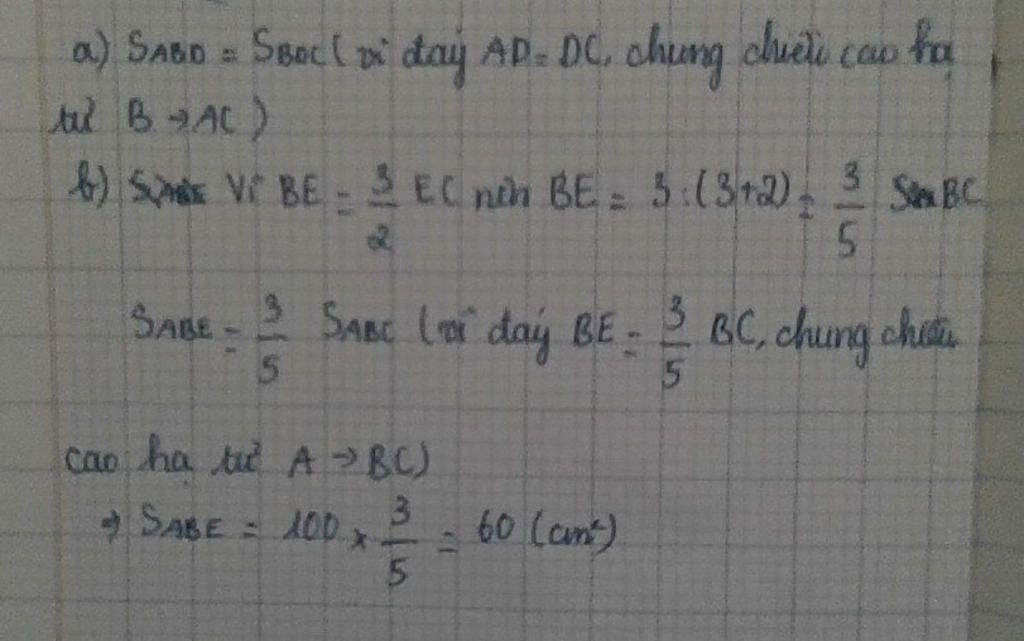 a) SABD = SBDC ( vì đáy AD = DC, chung chiều cao hạ
từ B → AC )
b) Vì BE = 3/2 EC nên BE = 3 : (3+2) = 3/5 BC
SABE = 3/5 SABC (vì đáy BE = 3/5 BC, chung chiều
cao hạ từ A → BC)
⇒ SABE = 100 × 3/5 = 60 (cm²)